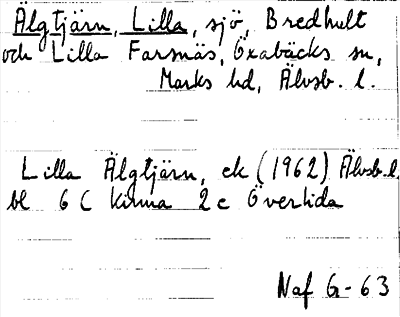 Älgtjärn, Lilla, sjö, Bredhult
och Lilla Farsnäs, Öxabäcks sn,
Marks hd, Älvsb. l.
Lilla Älgtjärn, ek (1962) Älvsb. l.
bl 6 C Kinna 2 c Överlida
Naf G-63